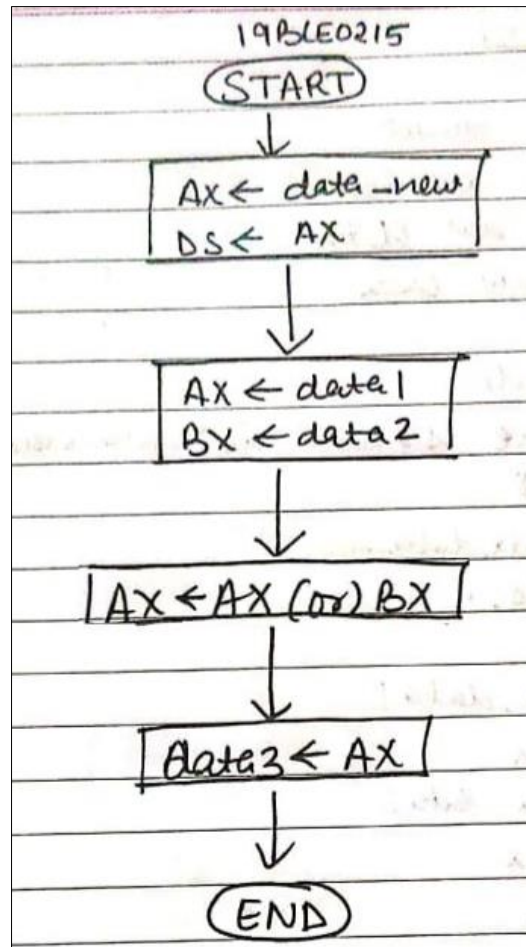 19BLE0215
START
AX ← data_new
DS ← AX
AX ← data1
BX ← data2
AX ← AX (or) BX
data3 ← AX
END